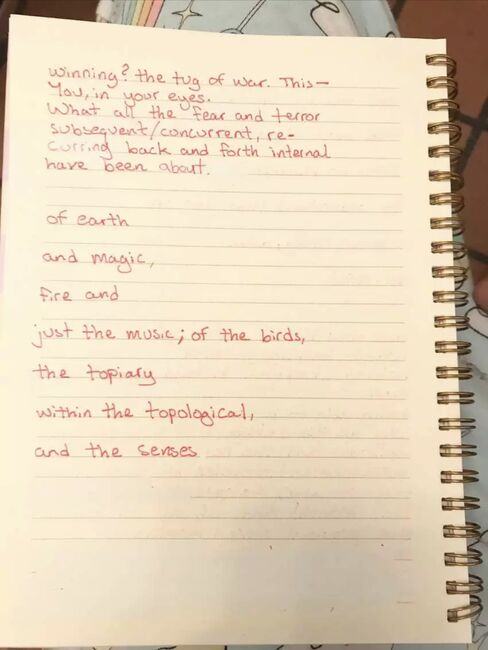 winning? the tug of war. This—
You, in your eyes.
What all the fear and terror
subsequent/concurrent, re-
curring back and forth internal
have been about.
of earth
and magic,
fire and
just the music; of the birds,
the topiary
within the topological,
and the senses